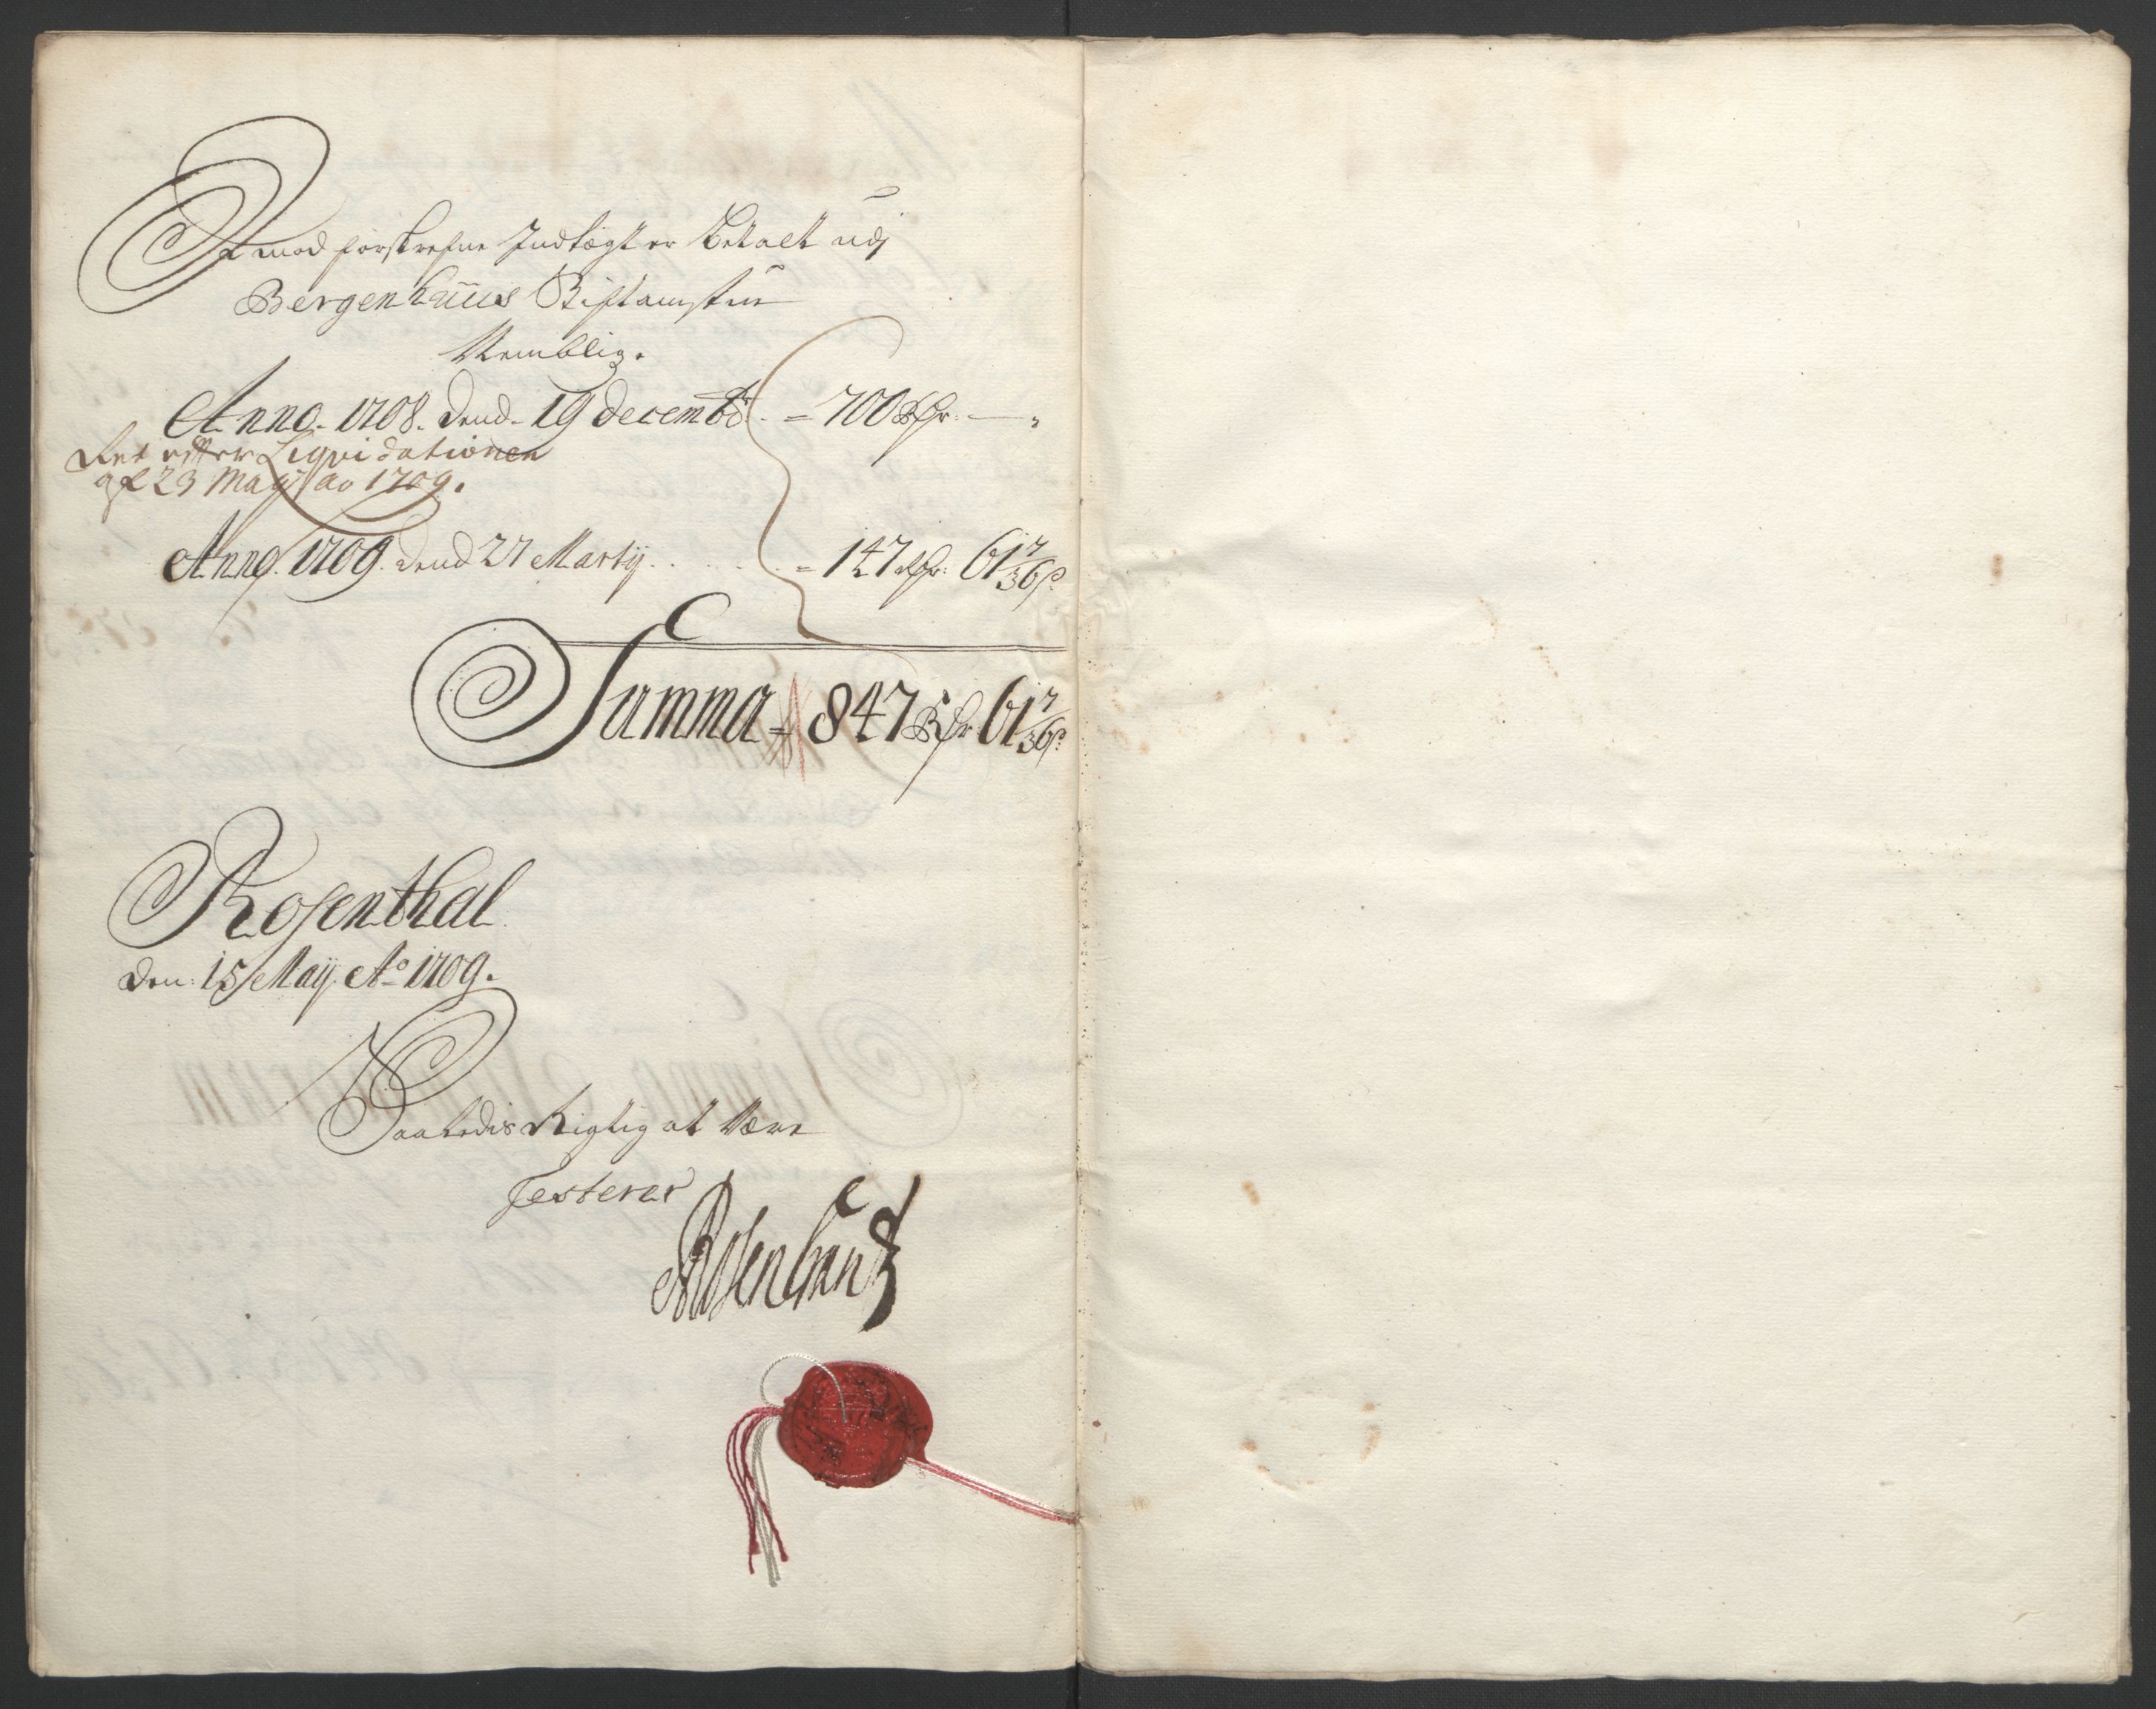 Her imod forskrefne Indtægt er Betalt udj
Bergenhuus Stiftamstue
Nemblig.
Anno. 1708. Dend. 19 decembr. = 700 Rdr. — "
Ret efter Liqvidationen
af 23 Maÿ ao 1709.
Anno. 1709. Dend 27 Martÿ. . . . = 147 Rdr. 61 7/36 s.
Summa = 847 Rdr 61 7/36 s.
Rosenthal
Den: 15 Maÿ. Ao 1709.
Saaledis Rigtig at være
Testerer